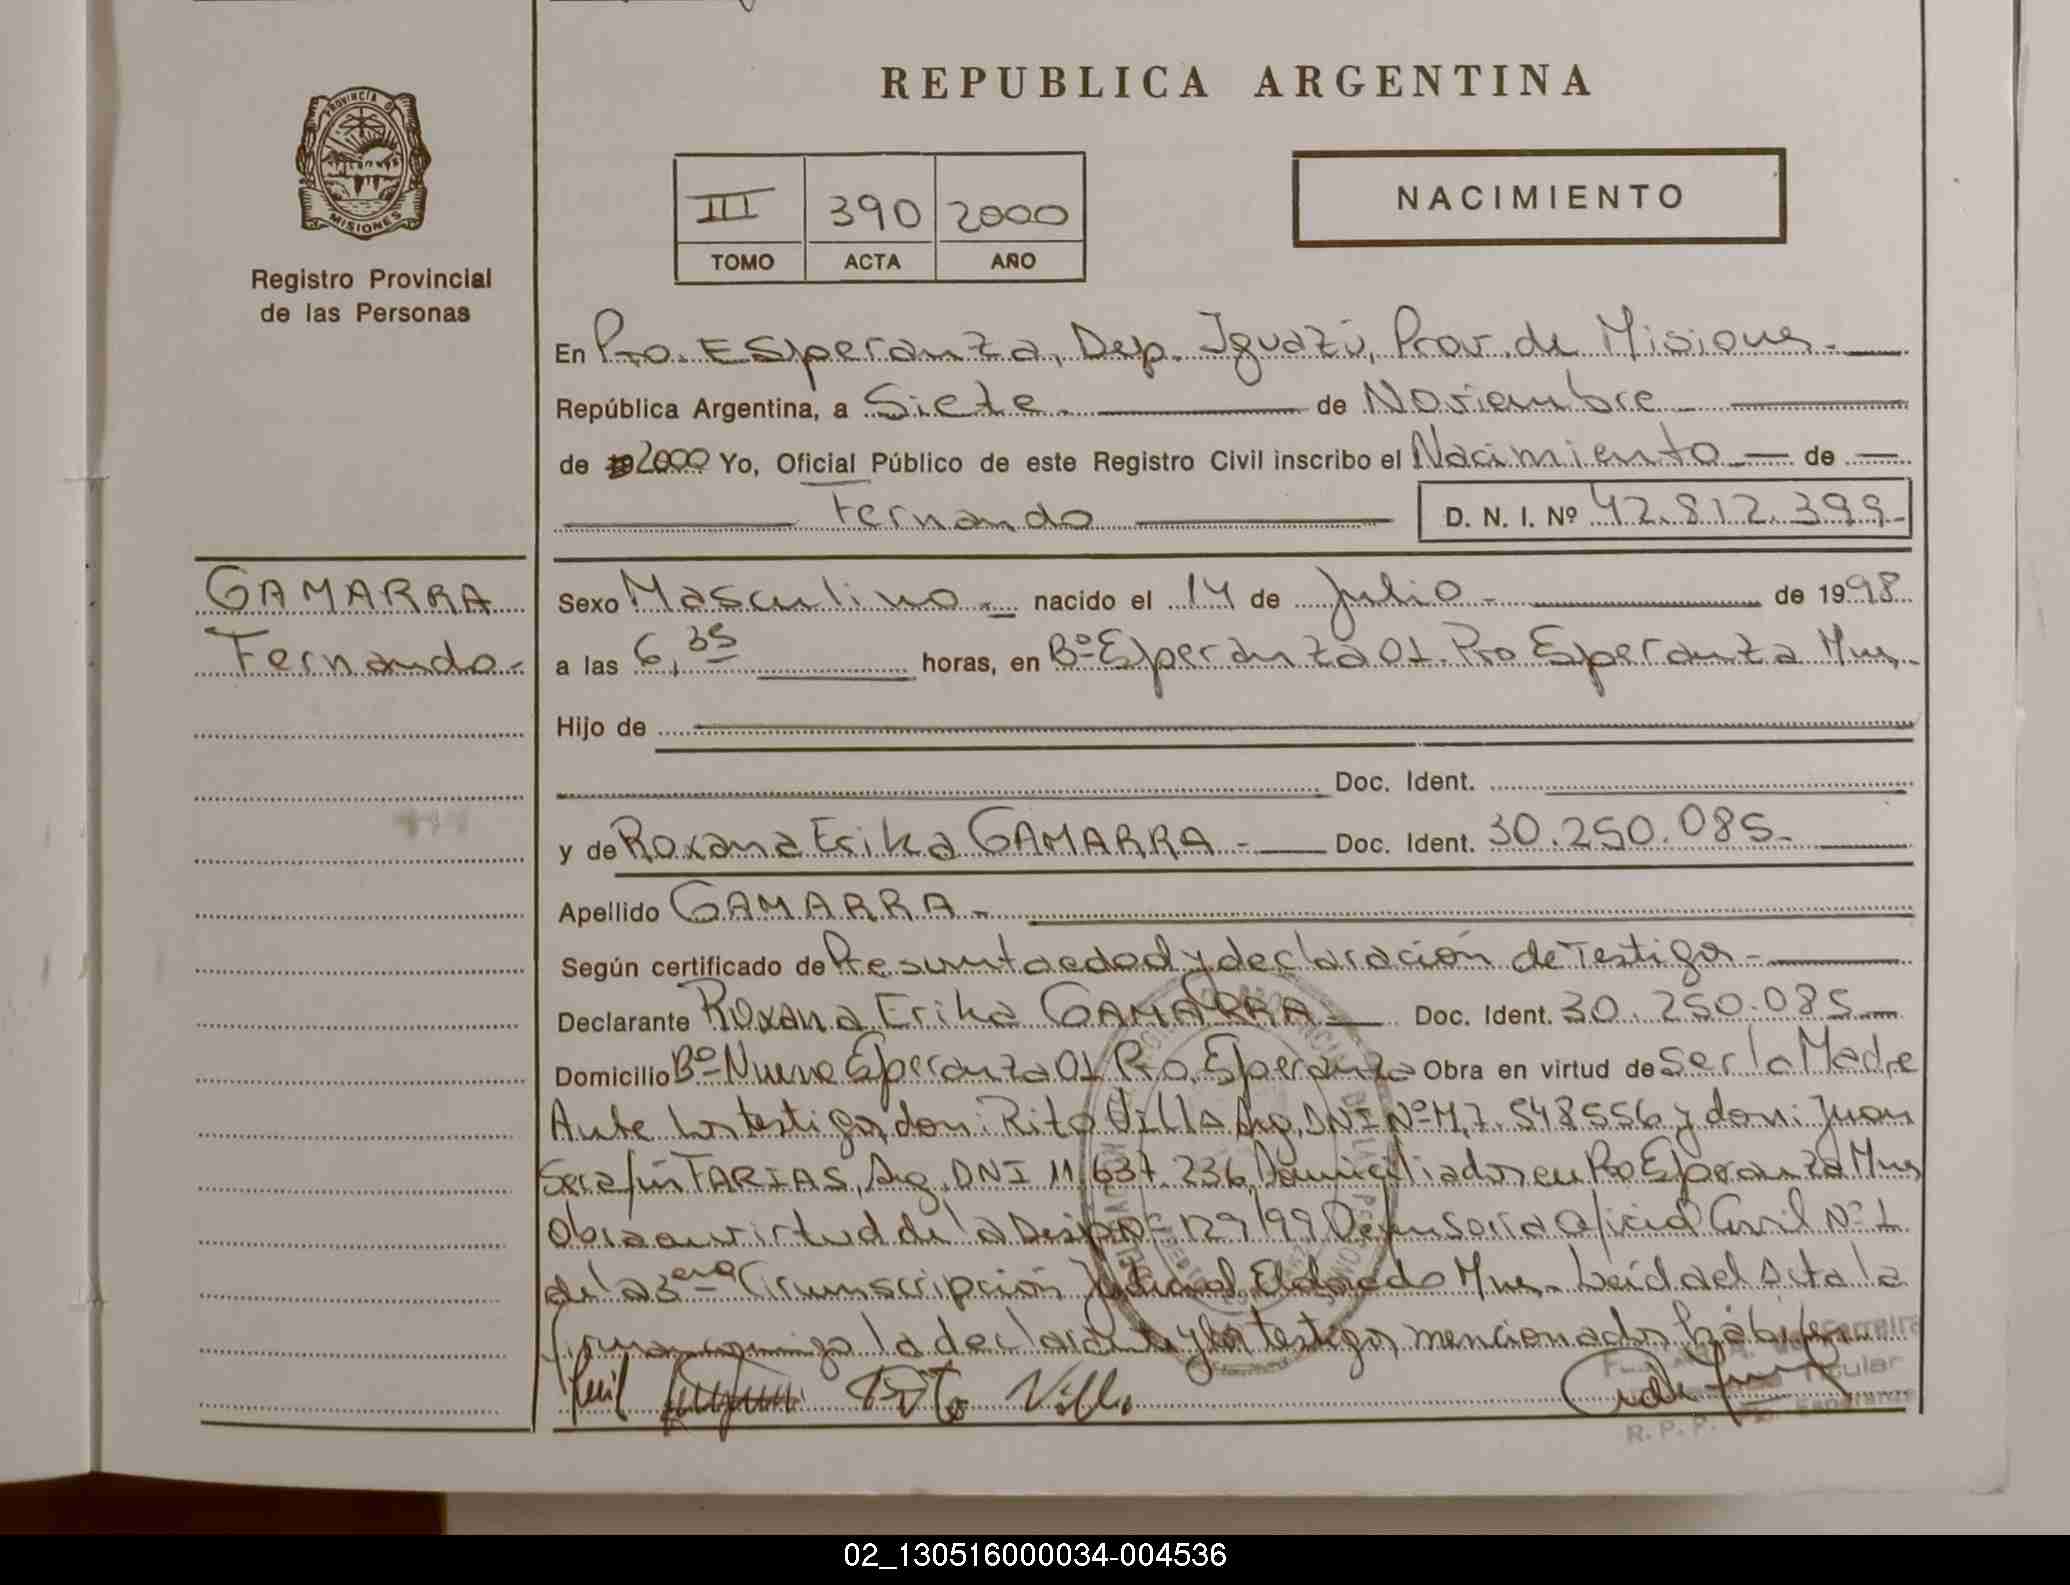 REPUBLICA ARGENTINA
PROVINCIA DE
MISIONES
Registro Provincial
de las Personas
III 390 2000
TOMO ACTA AÑO
NACIMIENTO
En Pto. Esperanza, Dep. Iguazú, Prov. de Misiones.-
República Argentina, a Siete.- de Noviembre
de 19 2000 Yo, Oficial Público de este Registro Civil inscribo el Nacimiento de
Fernando D. N. I. Nº 42.812.399-
GAMARRA
Fernando.-
Sexo Masculino.- nacido el 14 de Julio.- de 1998.
a las 6,35 horas, en Bº Esperanza 01. Pto Esperanza Mnes.
Hijo de
Doc. Ident.
y de Roxana Erika GAMARRA.- Doc. Ident. 30.250.085.-
Apellido GAMARRA.-
Según certificado de Presunta edad y declaración de Testigos.-
Declarante Roxana Erika GAMARRA.- Doc. Ident. 30.250.085.-
Domicilio Bº Nueva Esperanza 01 Pto. Esperanza Obra en virtud de ser la Madre
Ante los testigos, don: Rito Villa Arg. DNI Nº M7.548556 y don: Juan
Serafín FARIAS, Arg. DNI 11.637.236, Domiciliados en Pto Esperanza Mnes
Obra en virtud de la Disp. Nº 129/99 Defensoria Oficial Civil Nº 1
de la 3era Circunscripción Judicial Eldorado Mnes. Leida el Acta la
firman conmigo la declarante y los testigos mencionados hábiles.
Rito Villa
R. P. P. Pto. Esperanza
02_130516000034-004536